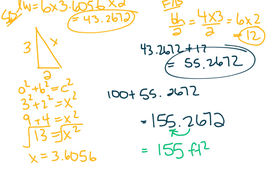 lw = 6 x 3.6056 x 2
= 43.2672
3
x
2
a² + b² = c²
3² + 2² = x²
9 + 4 = x²
√13 = √x²
x = 3.6056
= 4x3/2 = 6x2
2
= 12
43.2672 + 12
= 55.2672
100 + 55.2672
= 155.2672
= 155 ft²